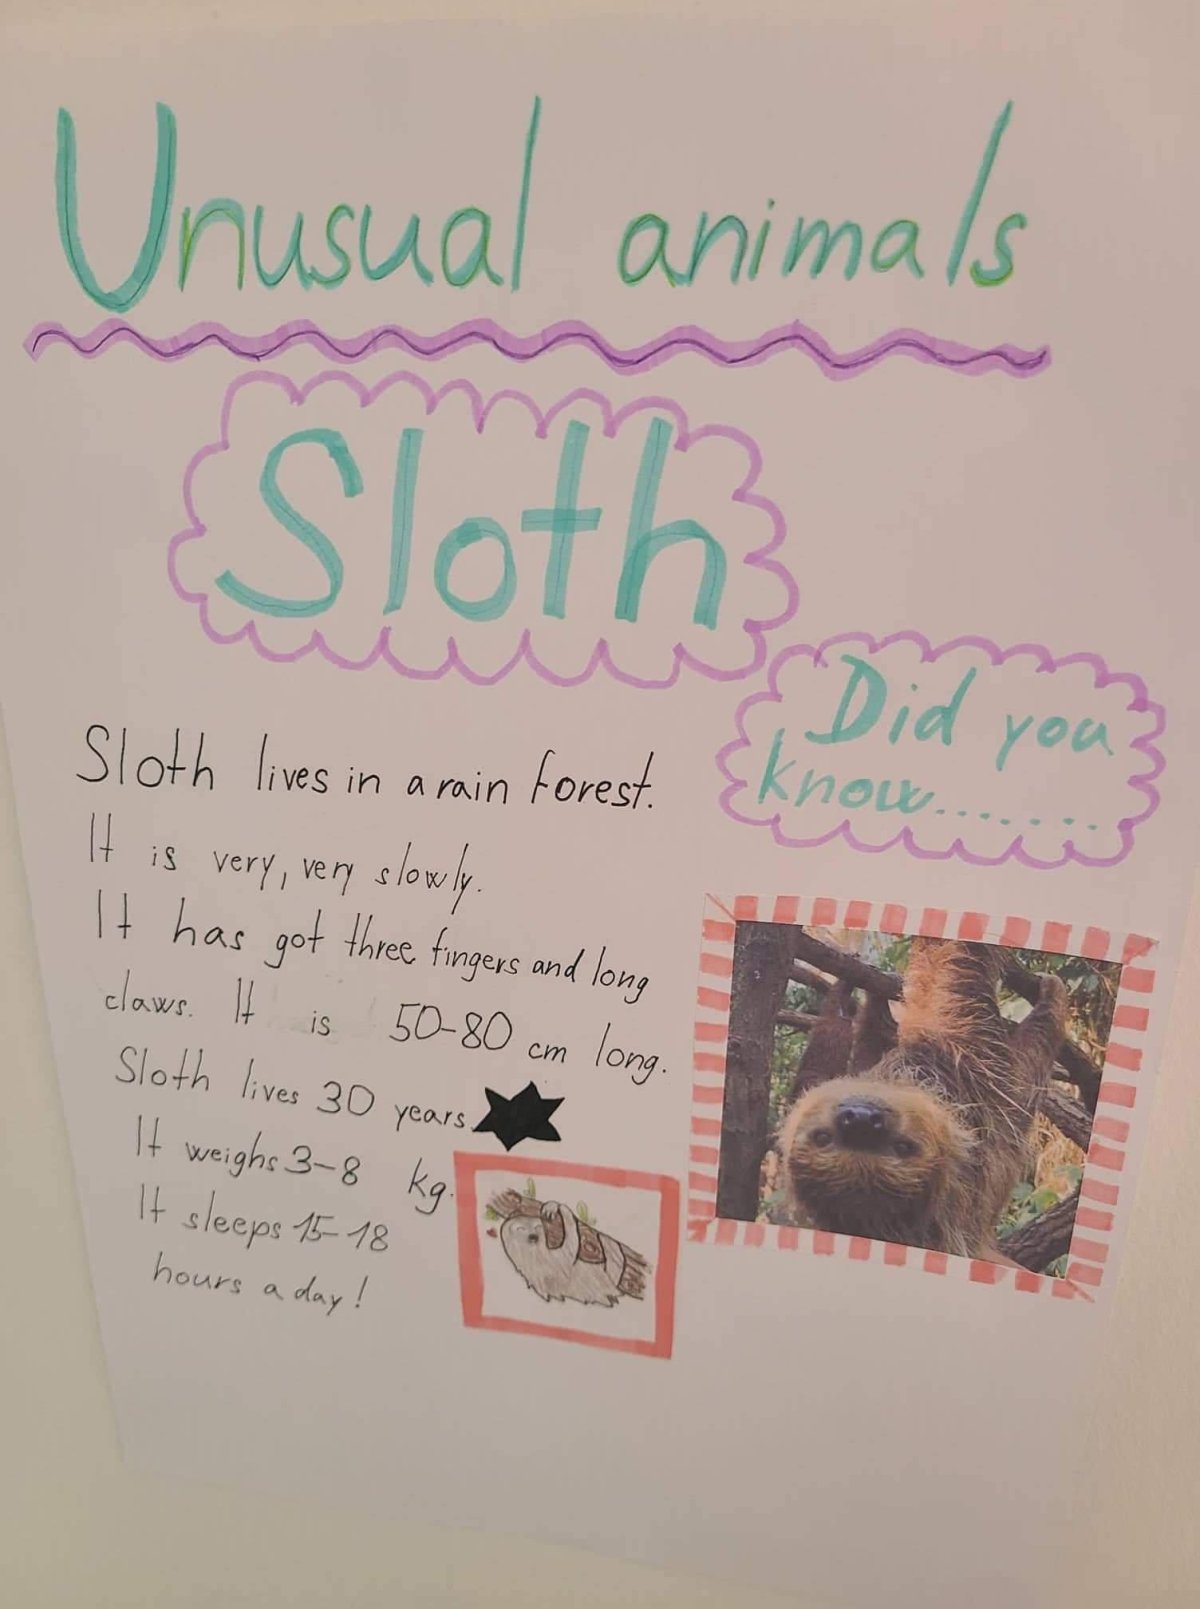 Unusual animals
Sloth
Did you
know.......
Sloth lives in a rain forest.
It is very, very slowly.
It has got three fingers and long
claws. It is 50-80 cm long.
Sloth lives 30 years
It weighs 3-8 kg.
It sleeps 15-18
hours a day!